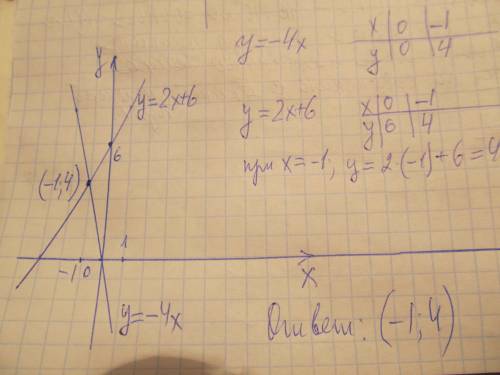 y=-4x
x | 0 | -1
y | 0 | 4
y=2x+6
x | 0 | -1
y | 6 | 4
при x=-1, y=2(-1)+6=4
y
y=2x+6
6
(-1;4)
-1 0 1
x
y=-4x
Ответ: (-1;4)